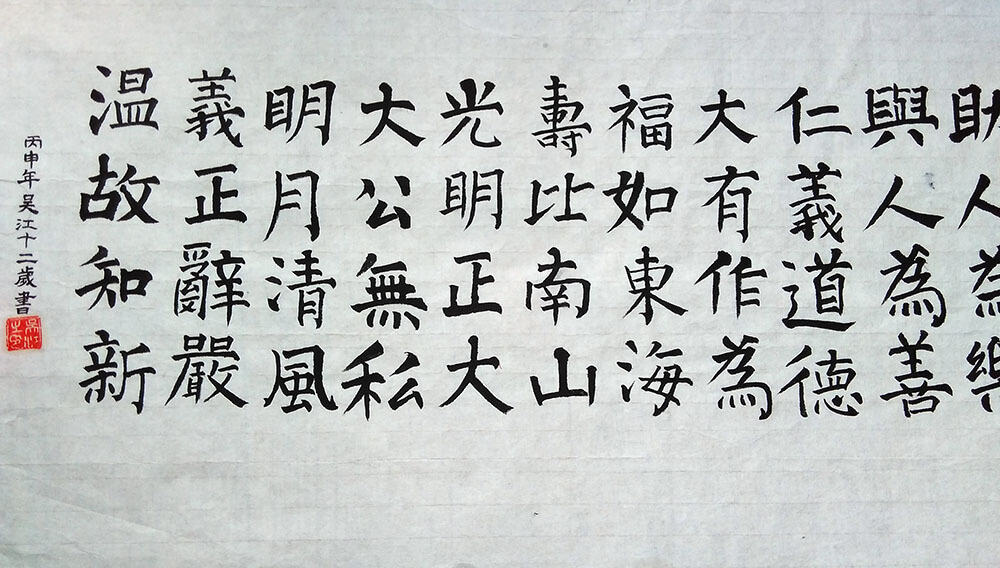 助人為樂
與人為善
仁義道德
大有作為
福如東海
壽比南山
光明正大
大公無私
明月清風
義正辭嚴
温故知新
丙申年吴江十二歲書